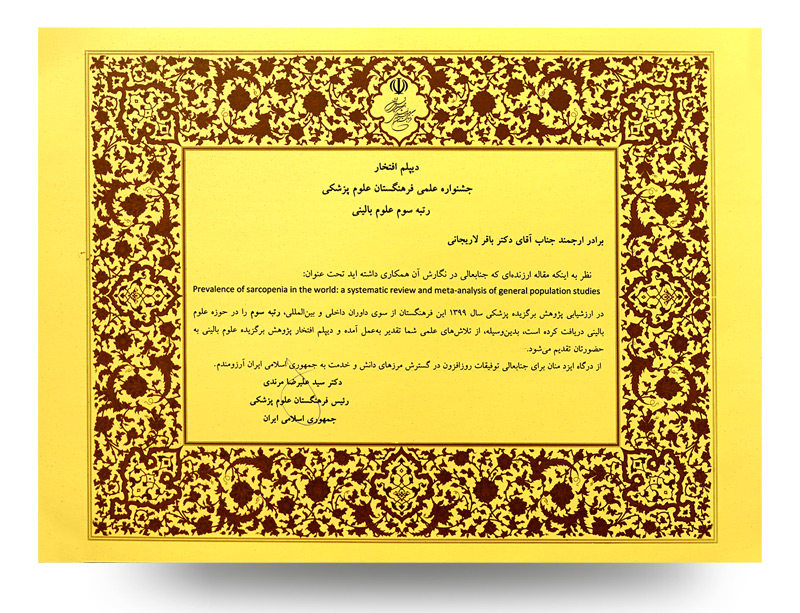 دیپلم افتخار
جشنواره علمی فرهنگستان علوم پزشکی
رتبه سوم علوم بالینی
برادر ارجمند جناب آقای دکتر باقر لاریجانی
نظر به اینکه مقاله ارزنده‌ای که جنابعالی در نگارش آن همکاری داشته اید تحت عنوان:
Prevalence of sarcopenia in the world: a systematic review and meta-analysis of general population studies
در ارزشیابی پژوهش برگزیده پزشکی سال ۱۳۹۹ این فرهنگستان از سوی داوران داخلی و بین‌المللی، رتبه سوم را در حوزه علوم
بالینی دریافت کرده است، بدین‌وسیله، از تلاش‌های علمی شما تقدیر به‌عمل آمده و دیپلم افتخار پژوهش برگزیده علوم بالینی به
حضورتان تقدیم می‌شود.
از درگاه ایزد منان برای جنابعالی توفیقات روزافزون در گسترش مرزهای دانش و خدمت به جمهوری اسلامی ایران آرزومندم.
دکتر سید علیرضا مرندی
رئیس فرهنگستان علوم پزشکی
جمهوری اسلامی ایران